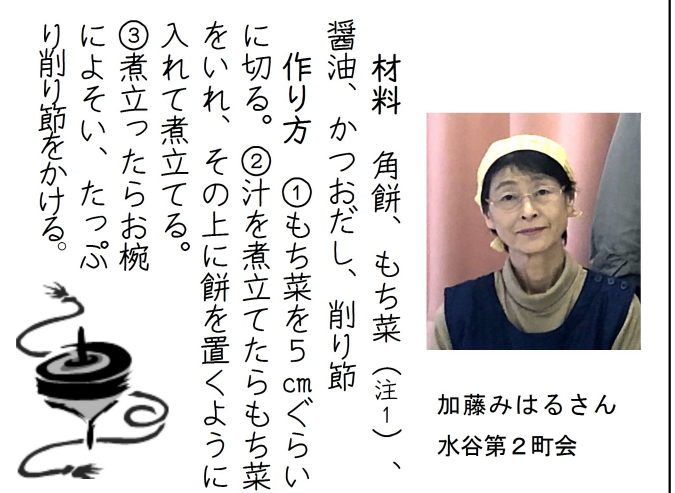 材料　角餅、もち菜（注1）、
醤油、かつおだし、削り節
作り方　①もち菜を5cmぐらい
に切る。②汁を煮立てたらもち菜
をいれ、その上に餅を置くように
入れて煮立てる。
③煮立ったらお椀
によそい、たっぷ
り削り節をかける。
加藤みはるさん
水谷第２町会